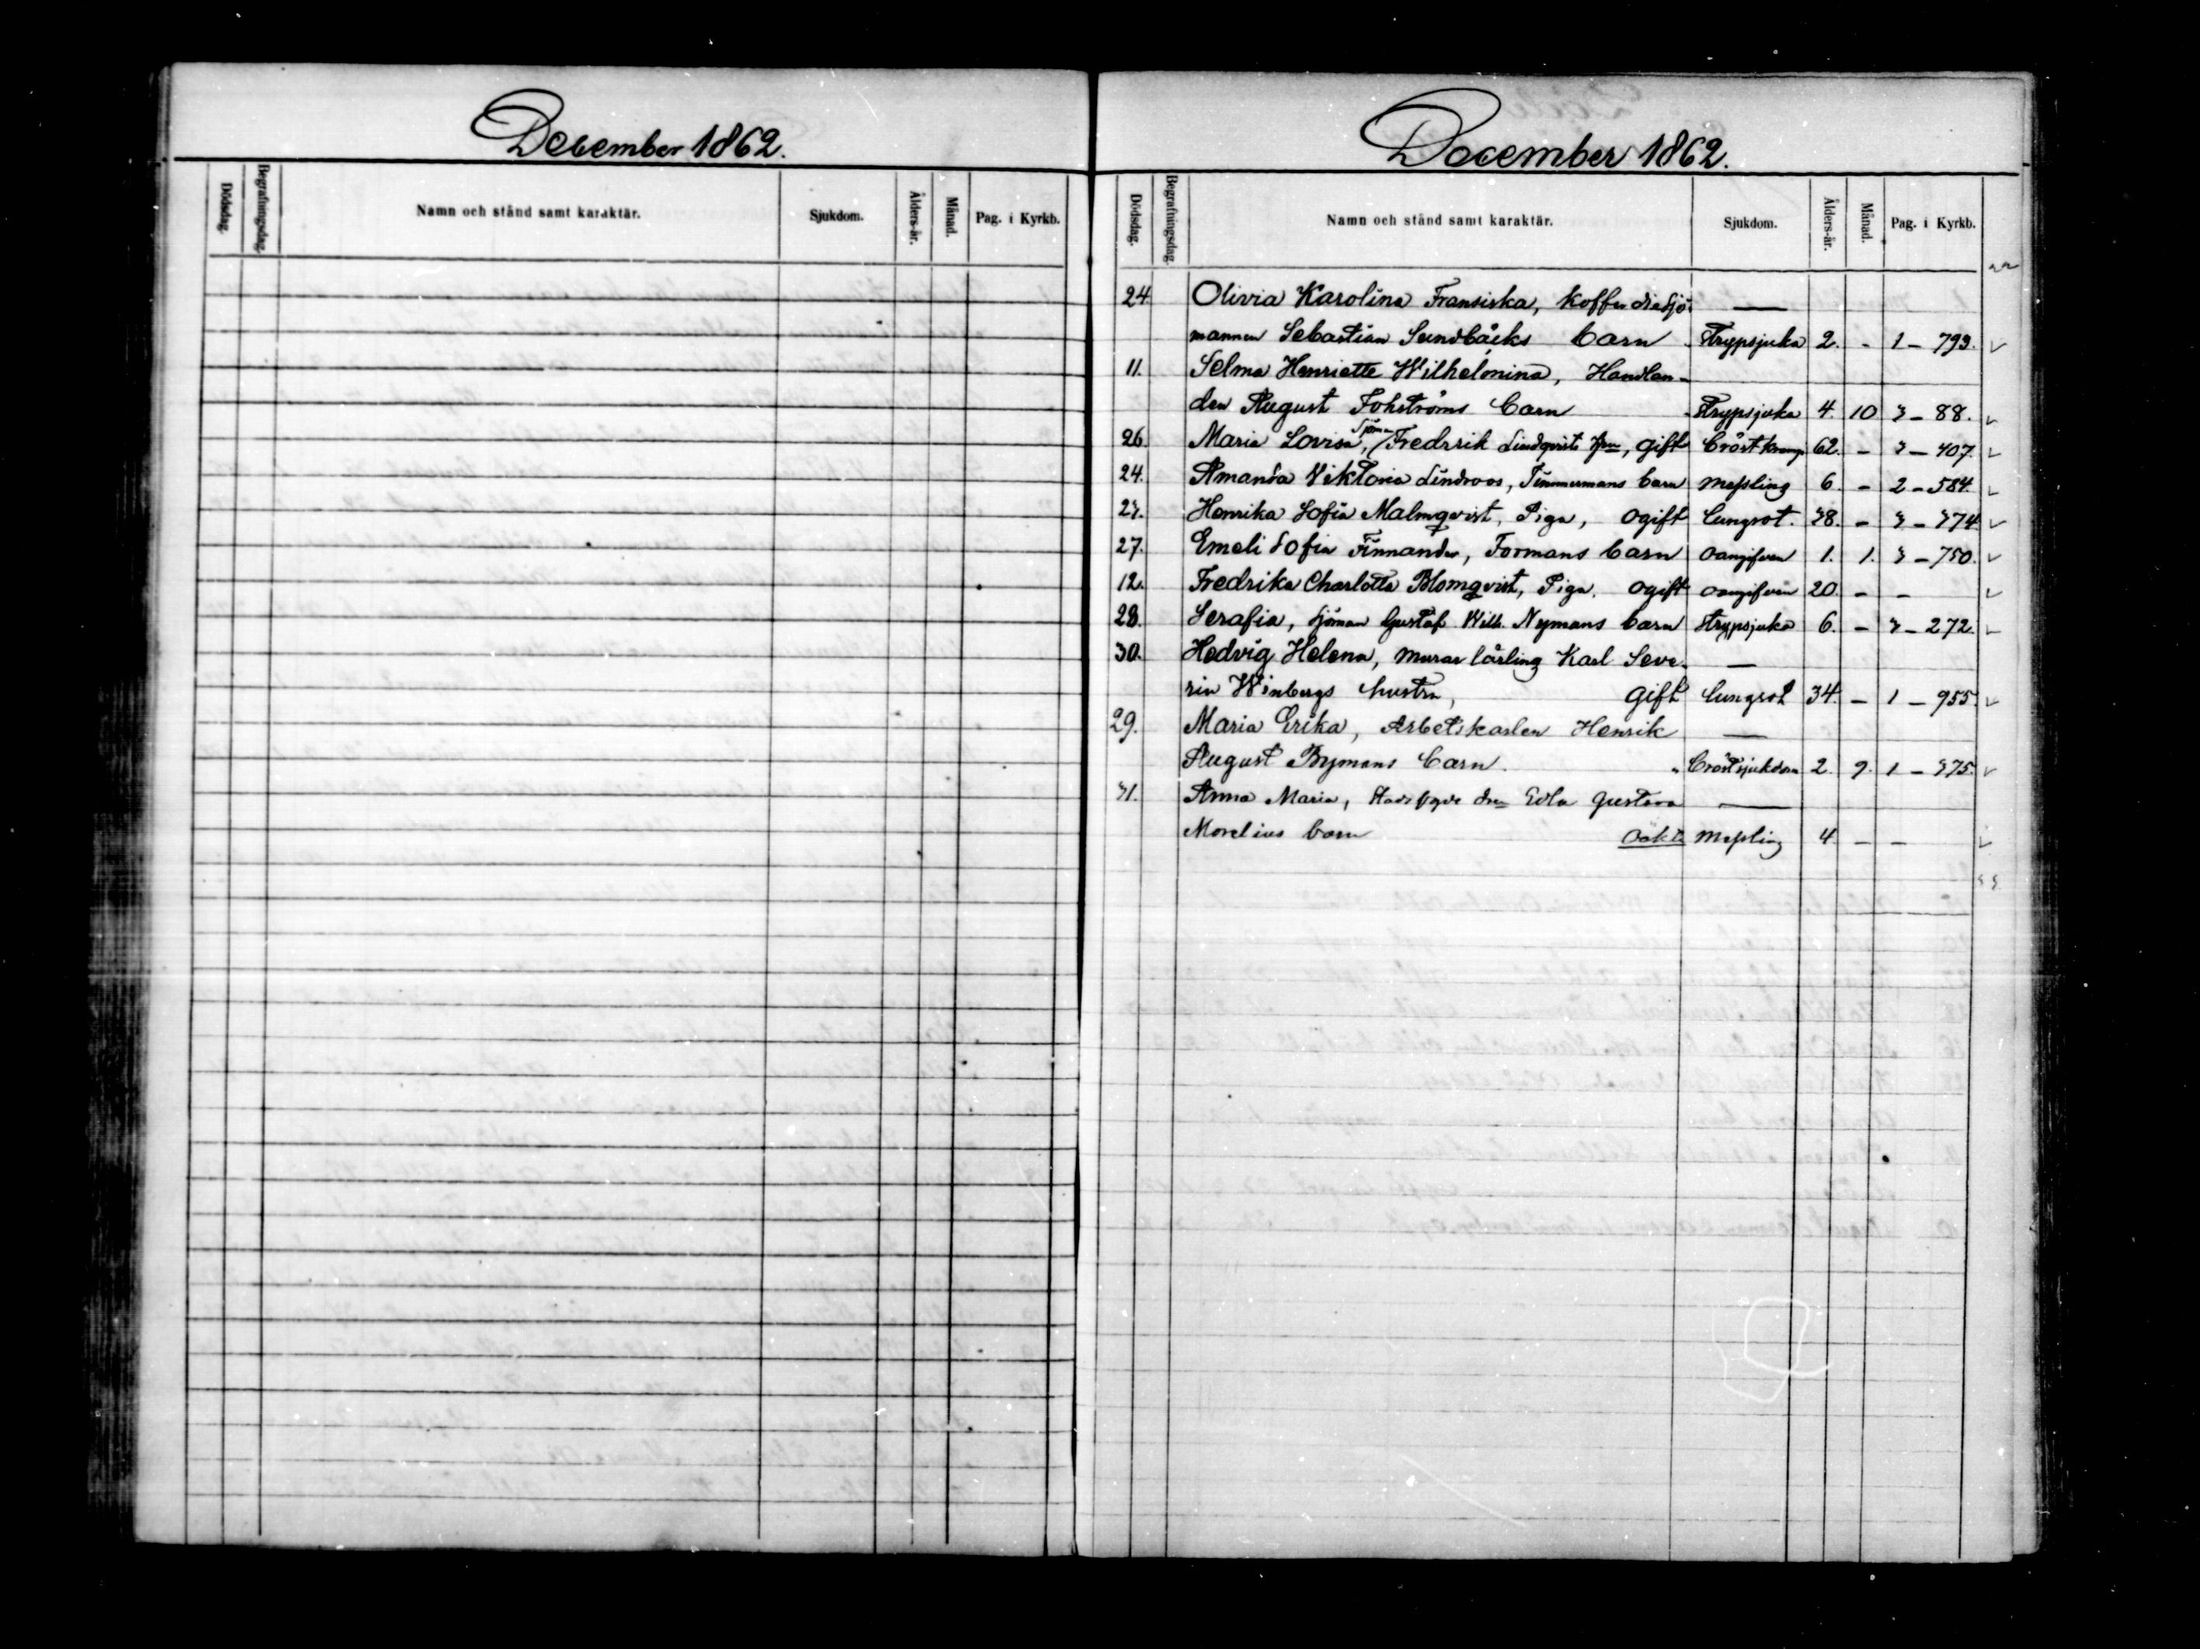 December 1862.
Dödsdag. Begrafningsdag. Namn och stånd samt karaktär. Sjukdom. Ålders-år. Månad. Pag. i Kyrkb.
December 1862.
Dödsdag. Begrafningsdag. Namn och stånd samt karaktär. Sjukdom. Ålders-år. Månad. Pag. i Kyrkb.
24 Olivia Karolina Fransiska, Kofferdiesjö- —
mannen Sebastian Sundbäcks barn Strypsjuka 2. - 1 - 793.
11. Selma Henriette Wilhelmina, Handlan-
den August Fohströms barn Strypsjuka 4. 10 3 - 88.
26. Maria Lovisa, Sjöman Fredrik Lindqvists hru, gift Bröstkramp 62. - 3 - 407.
24. Amanda Viktoria Lindroos, Timmermans barn messling 6. - 2 - 584.
23. Henrika Sofia Malmqvist, Piga, ogift lungsot. 38. - 3 - 374
27. Emeli Sofia Finnander, Formans barn oangifven 1. 1. 3 - 750.
12. Fredrika Charlotta Blomqvist, Piga. ogift oangifven 20. - -
28. Serafia, Sjöman Gustaf Wilh. Nymans barn strypsjuka 6. - 3 - 272.
30. Hedvig Helena, murar lärling Karl Seve- —
rin Winbergs hustru, gift lungsot 34. - 1 - 955.
29. Maria Erika, Arbetskarlen Henrik —
August Bymans barn. Bröstsjukdom 2. 9. 1 - 375.
31. Anna Maria, Edla Gustava —
Morelius barn oäkta messling 4. - -